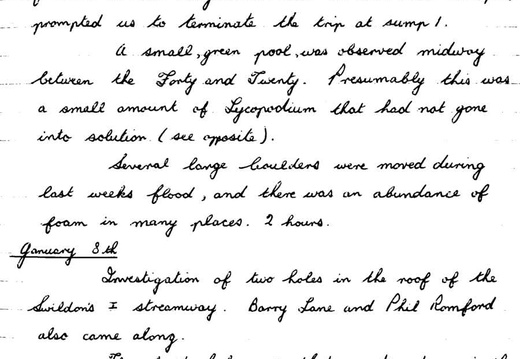 prompted us to terminate the trip at sump 1.
A small, green pool, was observed midway
between the Forty and Twenty. Presumably this was
a small amount of Lycopodium that had not gone
into solution (see opposite).
Several large boulders were moved during
last weeks flood, and there was an abundance of
foam in many places. 2 hours.
January 8th
Investigation of two holes in the roof of the
Swildon's I streamway. Barry Lane and Phil Romford
also came along.